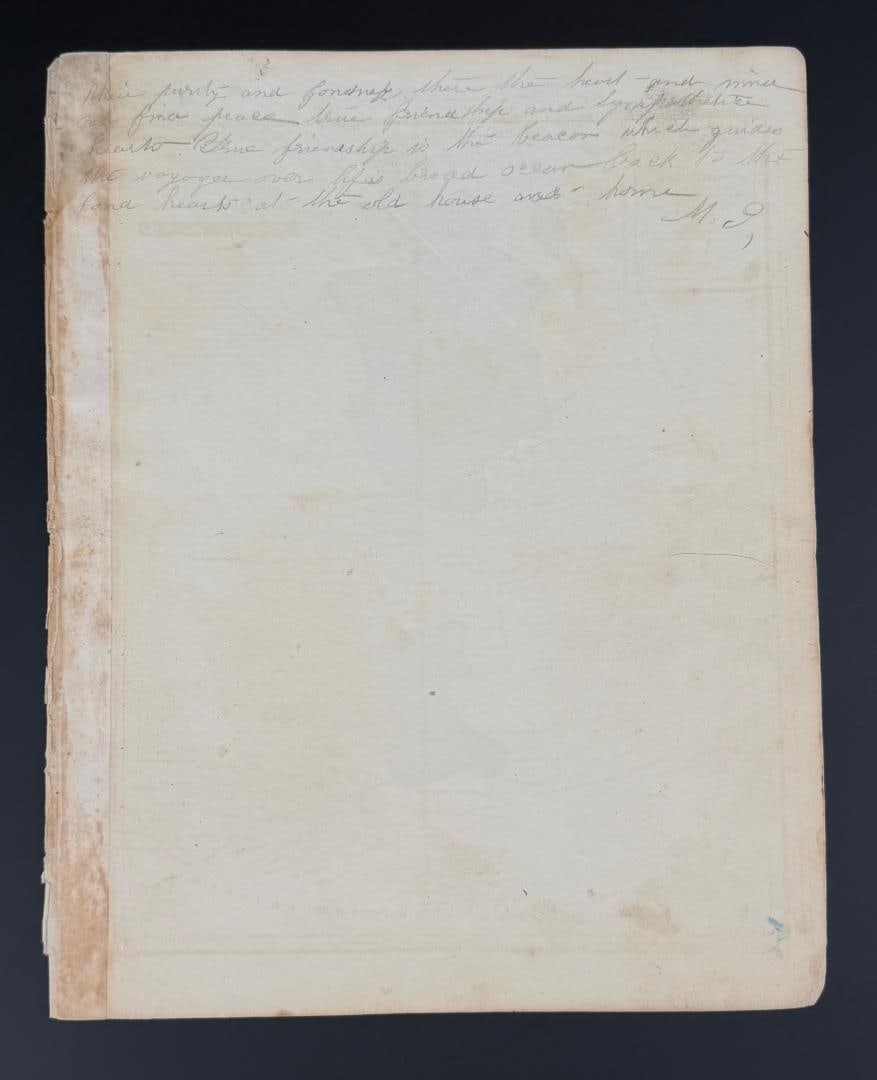 their purity and fondness, there the heart and mind
can find peace true friendship and Sympathetice
hearts True friendship is the beacon which guides
the voyager over life's broad ocean back to the
fond hearts at the old house home
M.